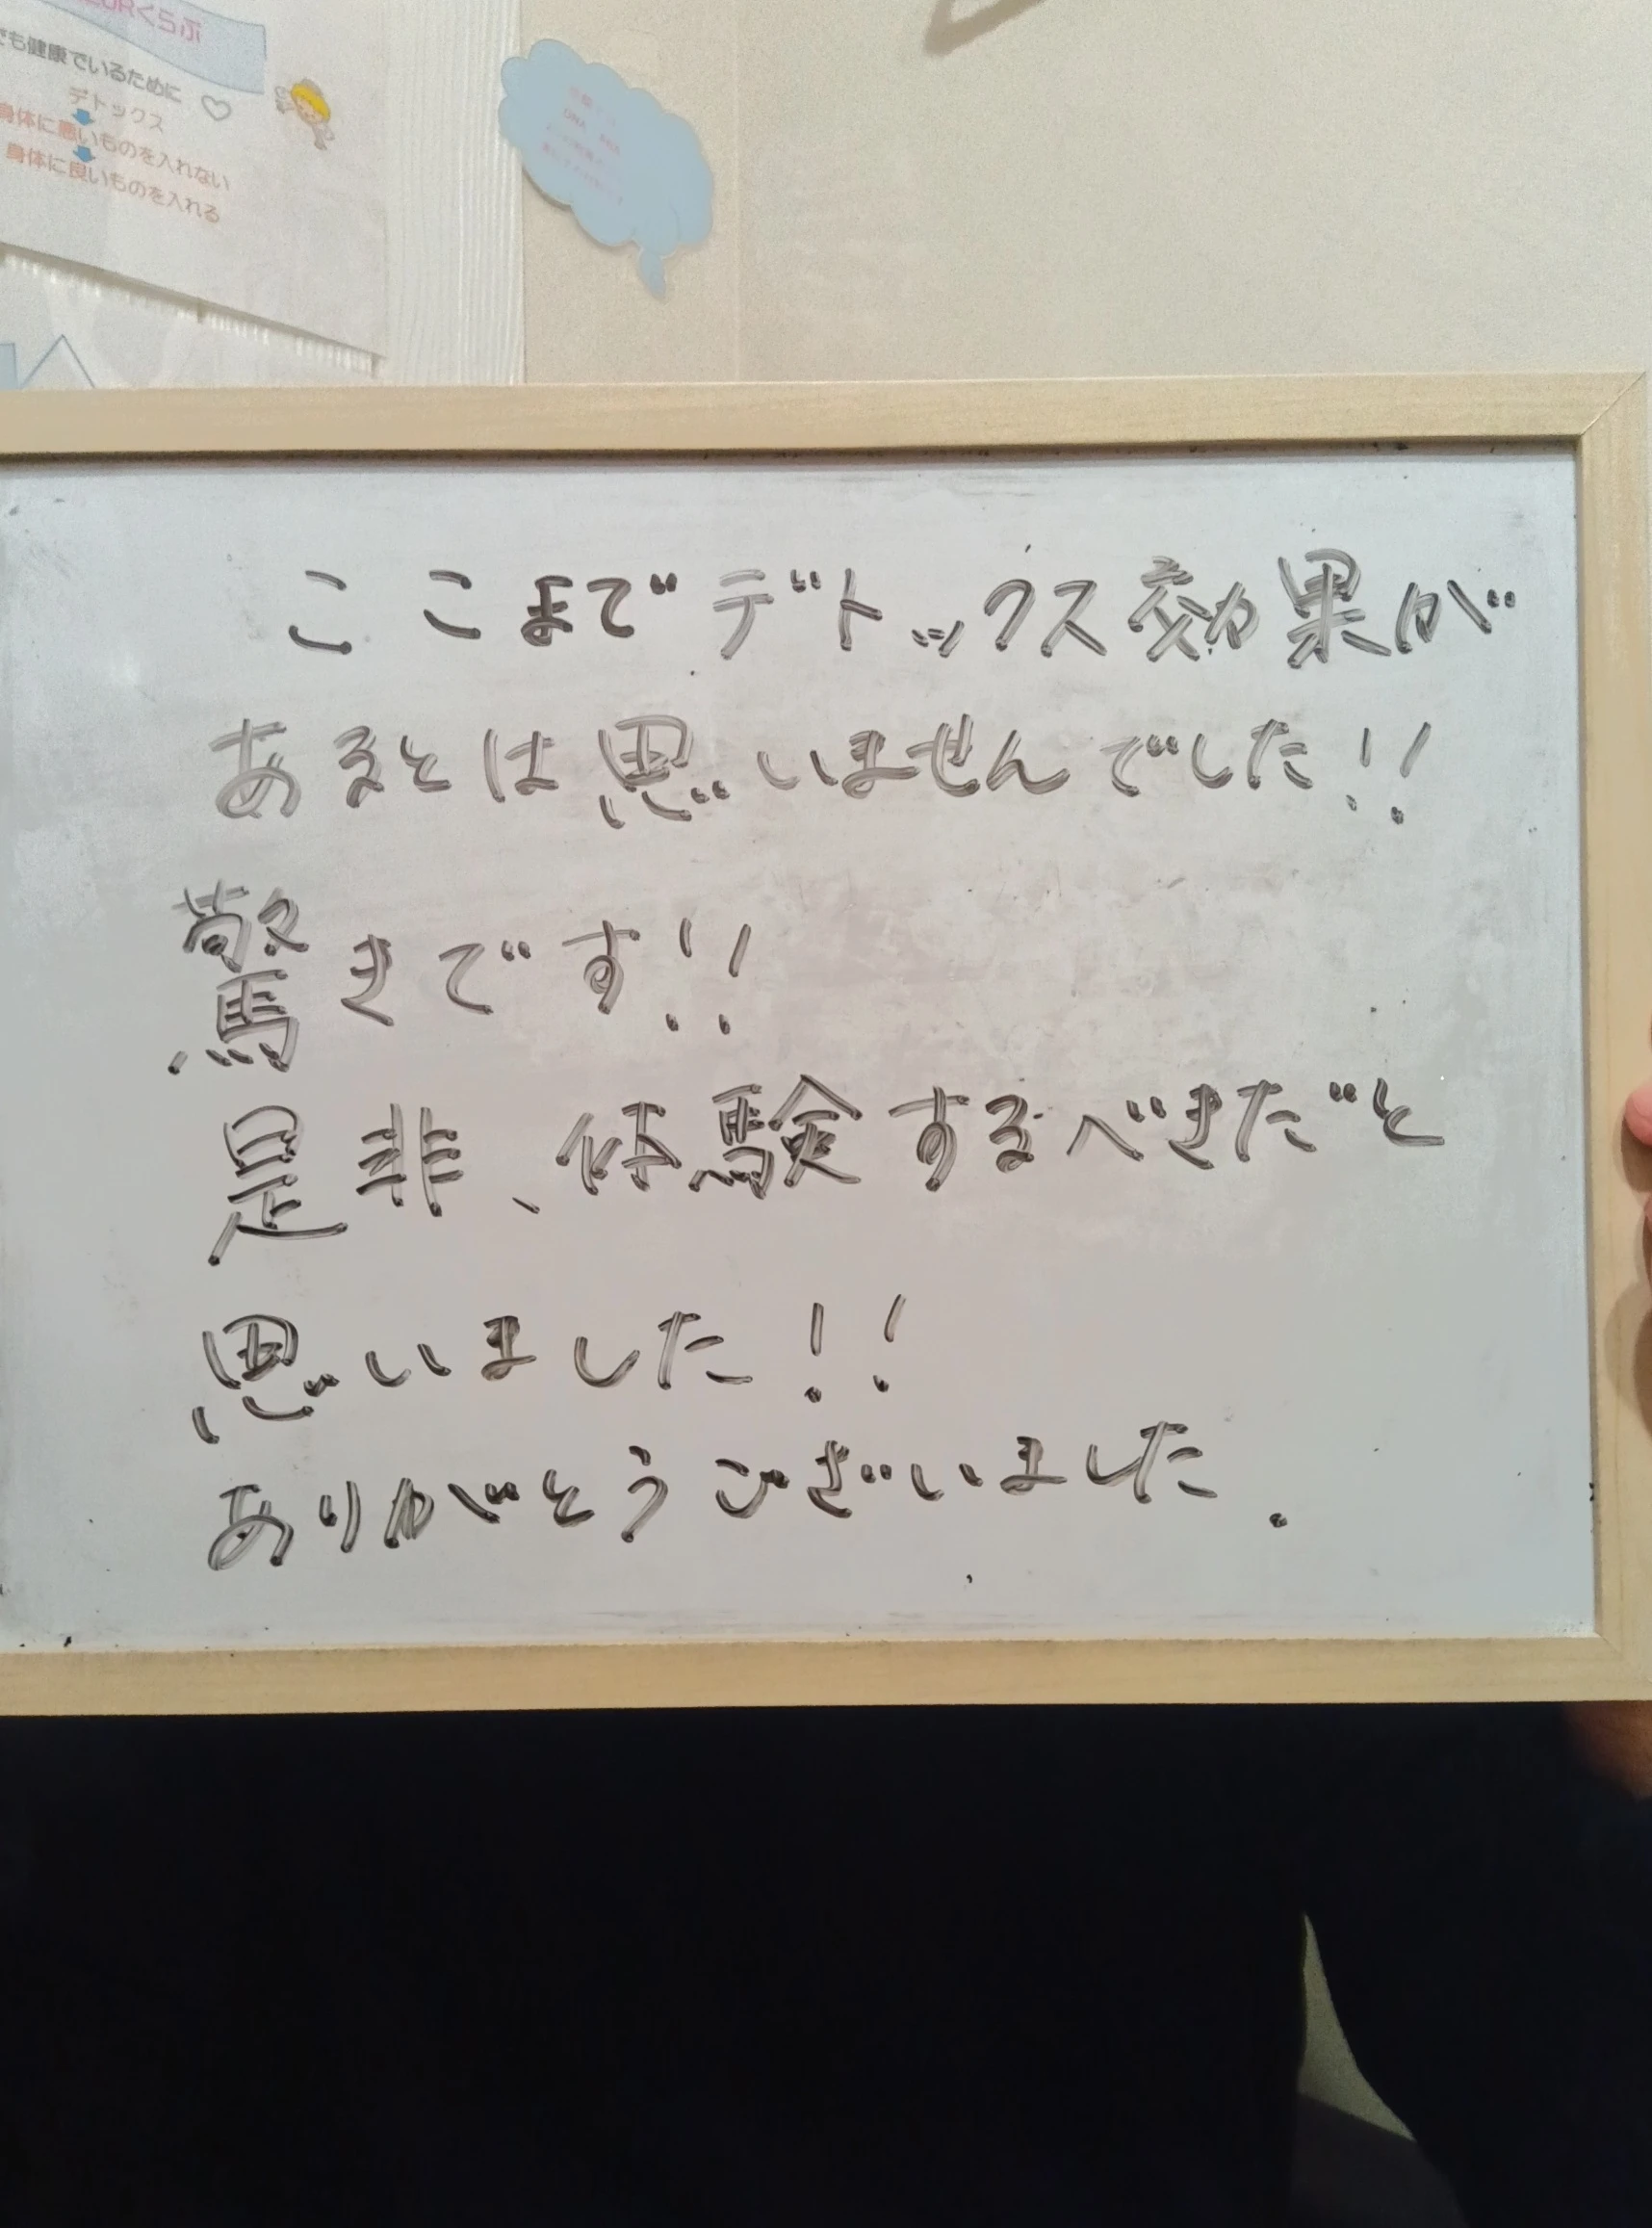 くらぶ
も健康でいるために
デトックス
身体に悪いものを入れない
身体に良いものを入れる
DNA
ここまでデトックス効果が
あるとは思いませんでした!!
驚きです!!
是非、体験するべきだと
思いました!!
ありがとうございました.